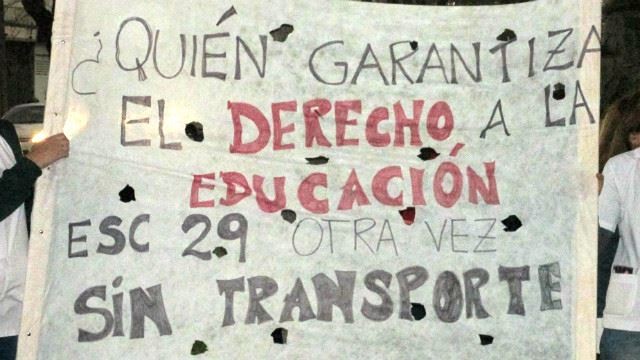 ¿QUIÉN GARANTIZA
EL DERECHO A LA
EDUCACIÓN
ESC 29 OTRA VEZ
SIN TRANSPORTE